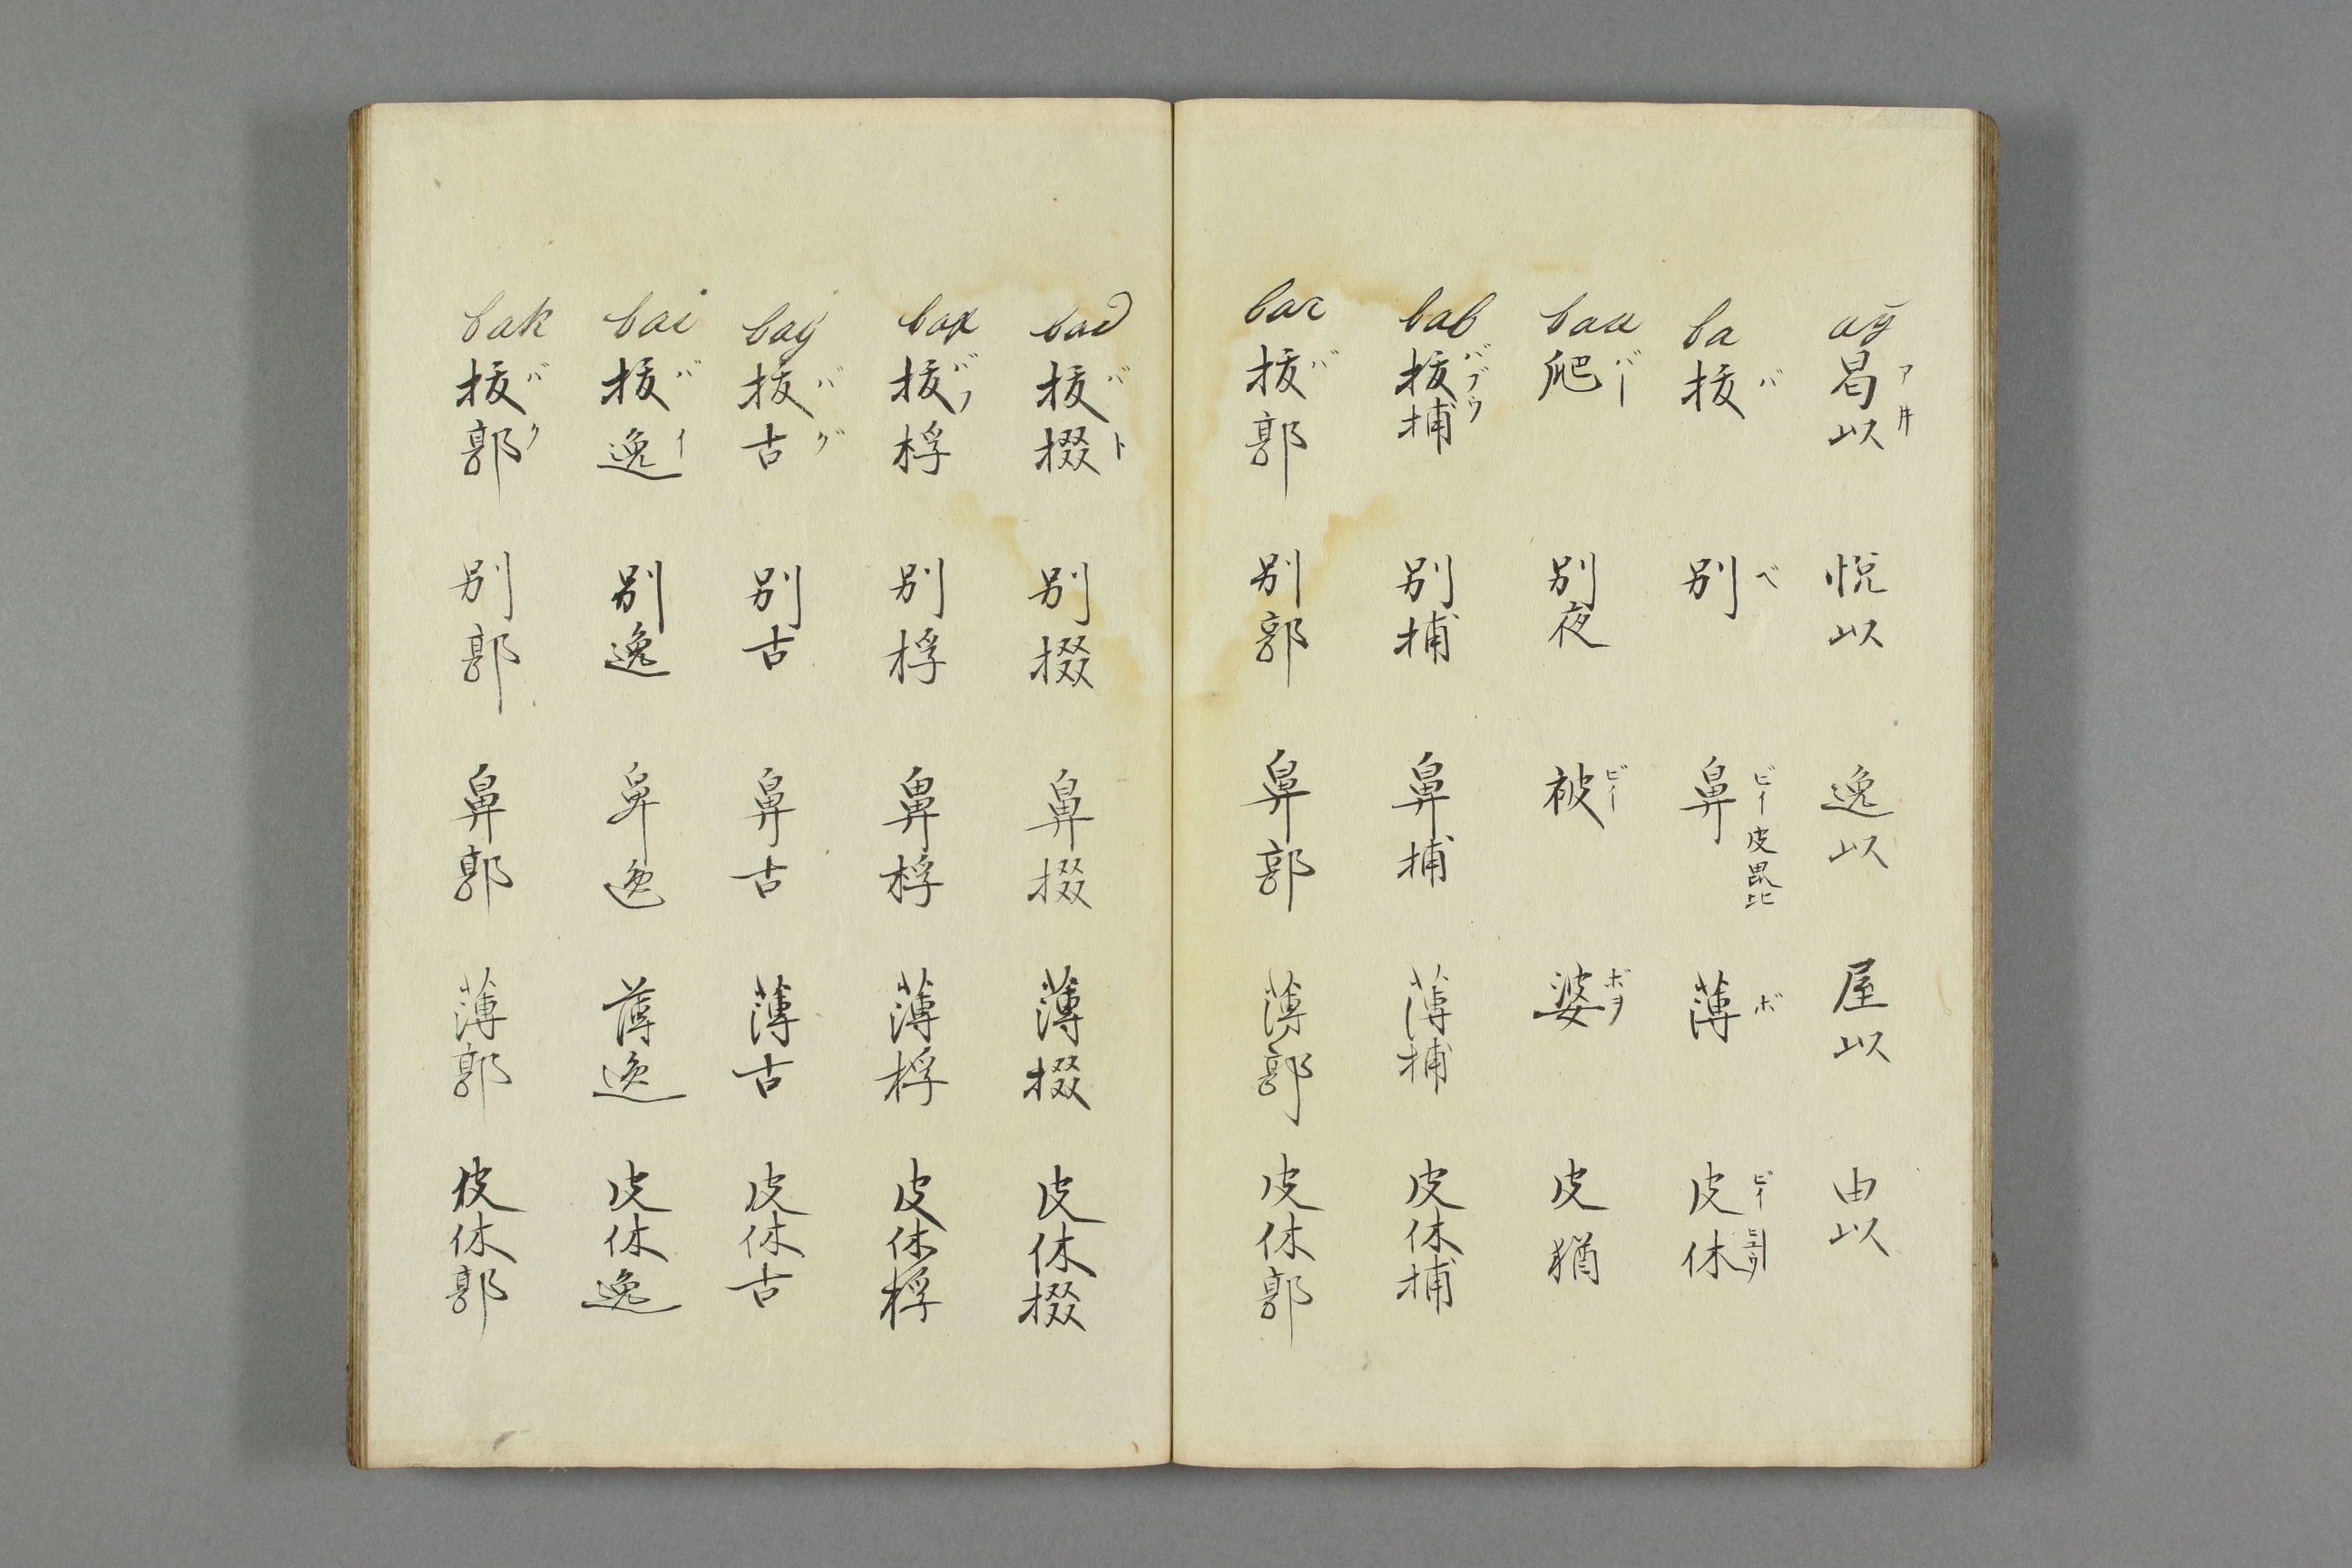 aÿ 曷以 アヰ 悦以 逸以 屋以 由以
ba 拔 バ 別 ベ 鼻 ビイ 皮毘比 薄 ボ 皮休 ビイ
baa 爬 バー 別夜 被 ビー 婆 ボヲ 皮猶
bab 拔捕 バブウ 別捕 鼻捕 薄捕 皮休捕
bac 拔郭 バ 別郭 鼻郭 薄郭 皮休郭
bad 拔掇 バト 別掇 鼻掇 薄掇 皮休掇
拔桴 バフ 別桴 鼻桴 薄桴 皮休桴
bag 拔古 バグ 別古 鼻古 薄古 皮休古
bai 拔逸 バイ 別逸 鼻逸 薄逸 皮休逸
bak 拔郭 バク 別郭 鼻郭 薄郭 皮休郭